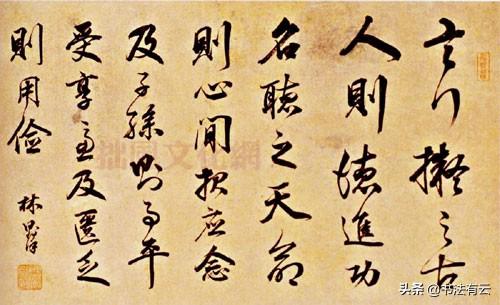 言行擬之古
人則德進功
名聽之天命
則心閒報應念
及子孫則事平
受享慮及匱乏
則用儉
林則徐
拙風文化網
头条 @书法有云